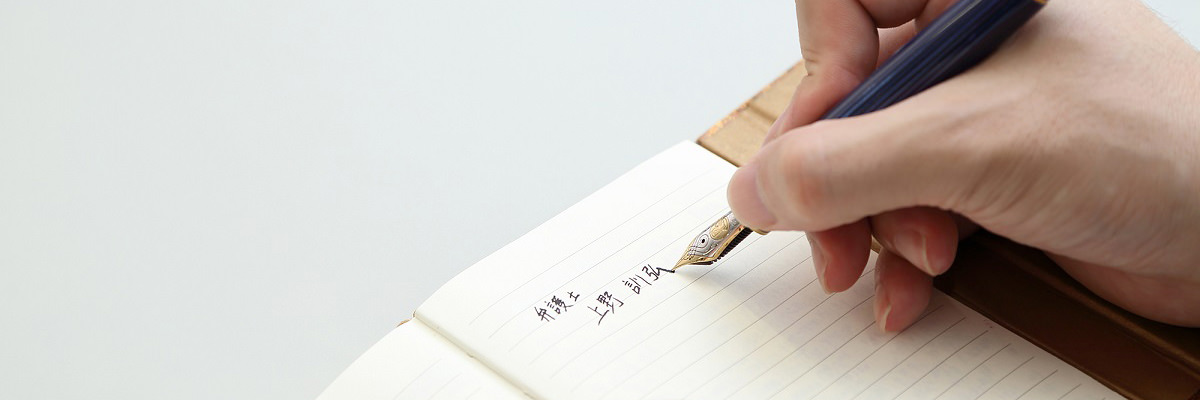 弁護士
上野 訓弘